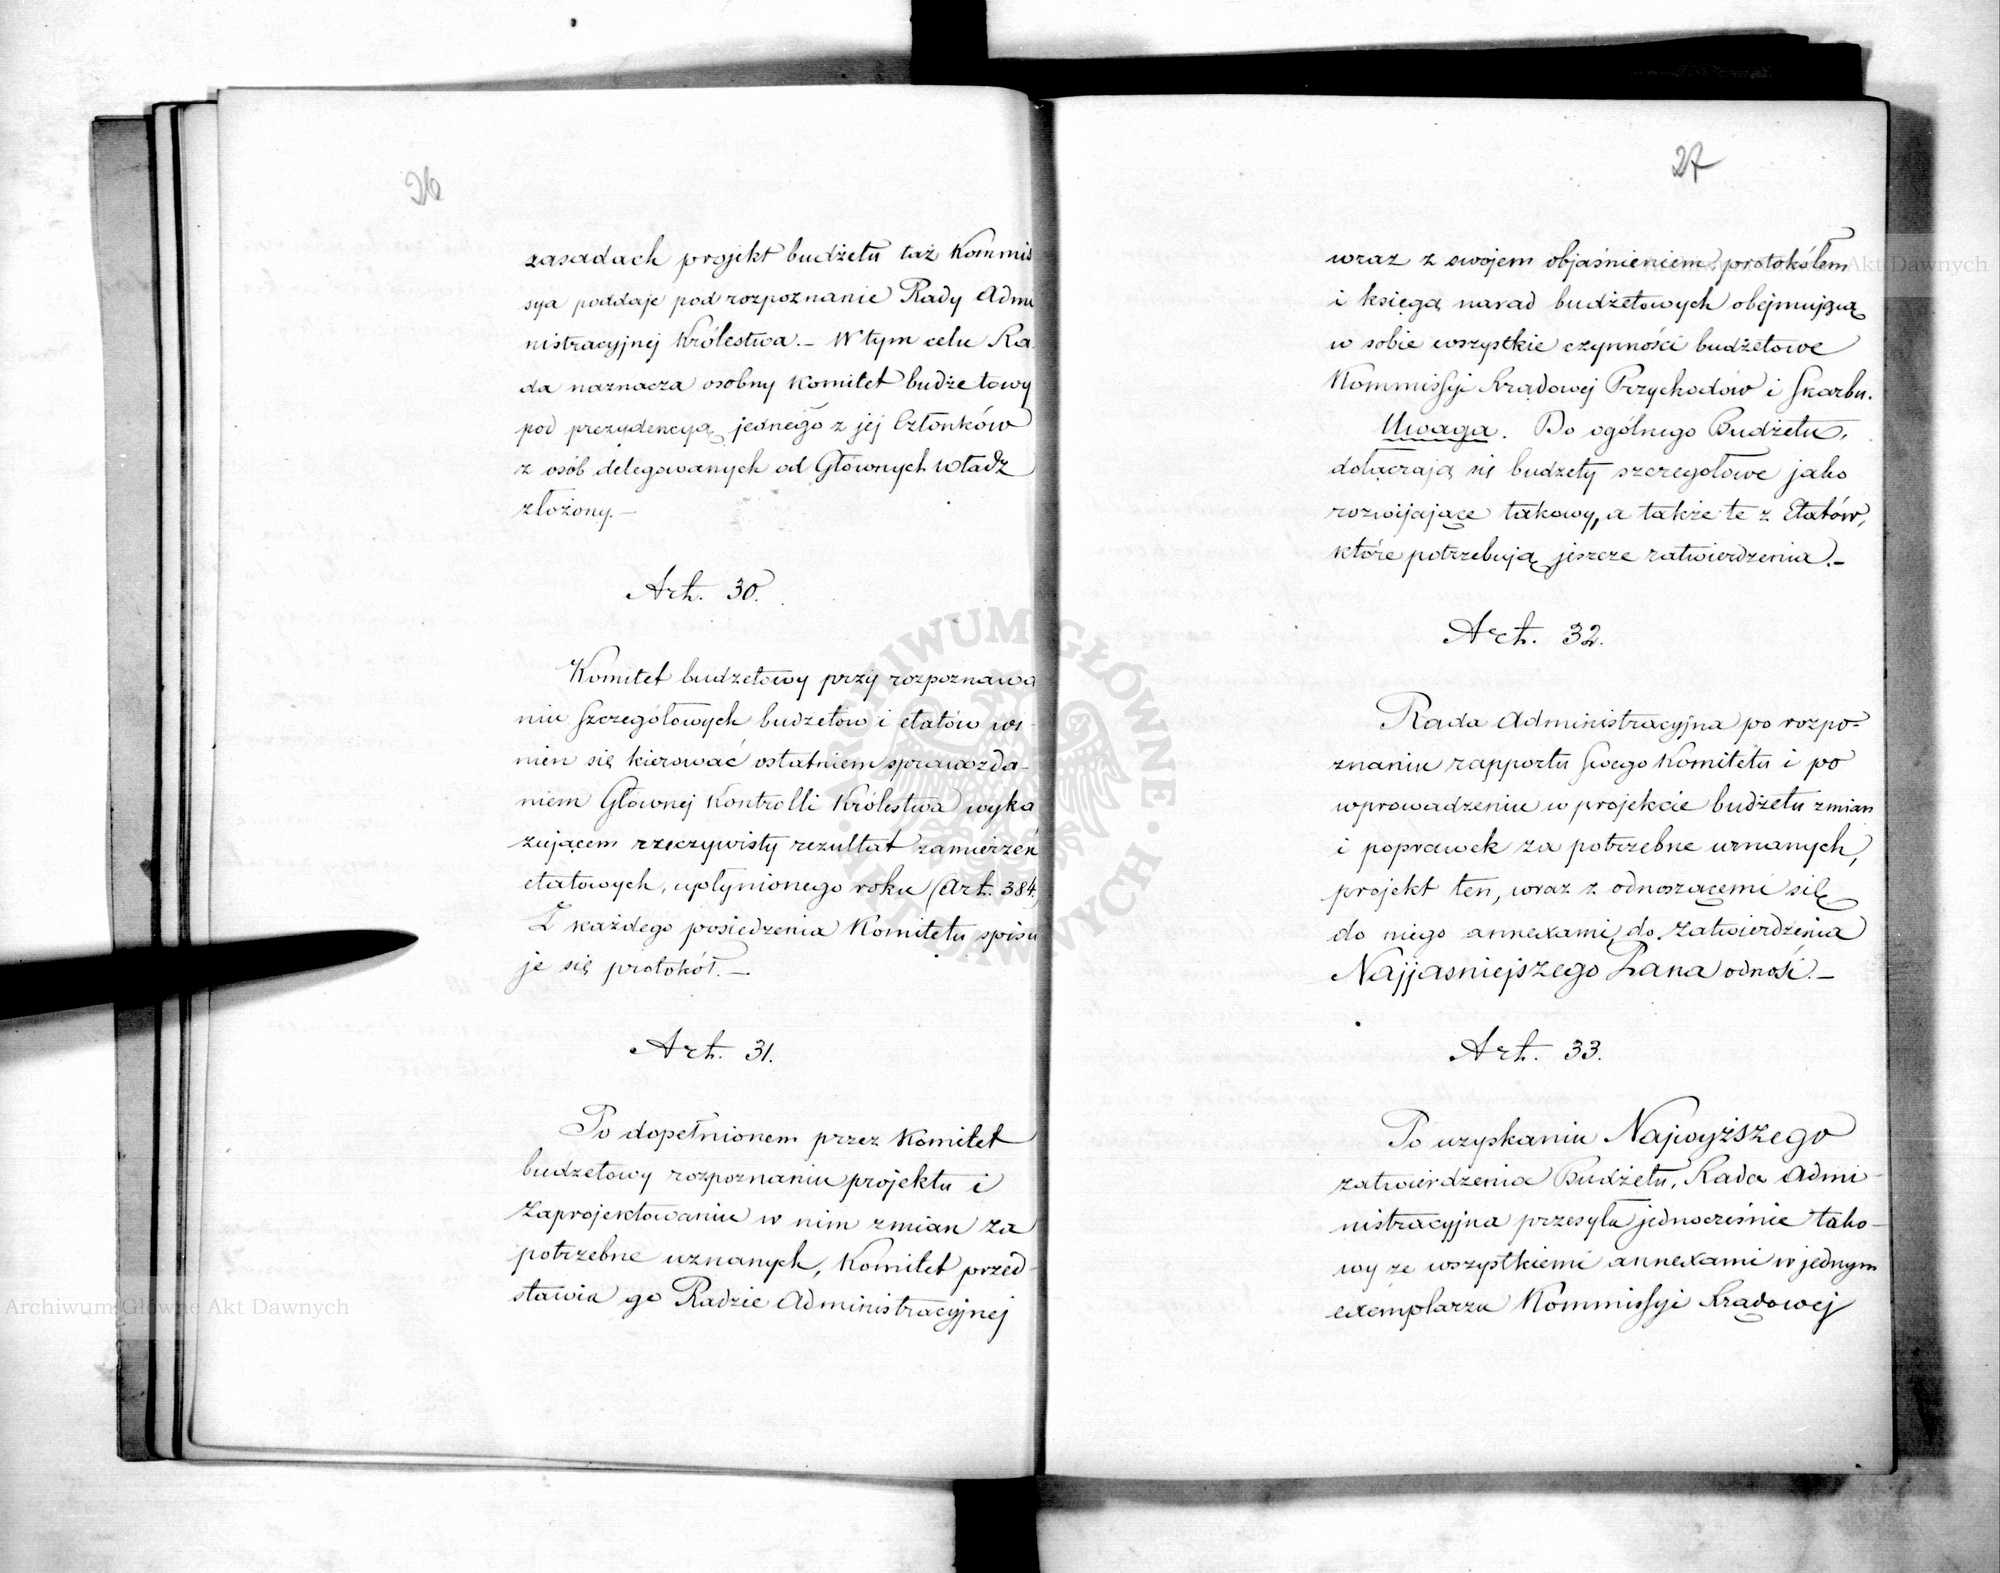 26
zasadach projekt budżetu taż Kommis
sya poddaje pod rozpoznanie Rady Admi
nistracyjnej Królestwa. – W tym celu Ra-
da naznacza osobny Komitet budżetowy
pod prezydencyą jednego z jej Członków
z osób delegowanych od Głównych Władz
złożony. –
Art. 30.
Komitet budżetowy przy rozpoznawa
niu szczegółowych budżetów i etatów wi-
nien się kierować ostatniem sprawozda-
niem Głównej Kontrolli Królestwa wyka
zującem rzeczywisty rezultat zamierzeń
etatowych, upłynionego roku (Art. 384.)
Z każdego posiedzenia Komitetu spisu
je się protokół. –
Art. 31.
Po dopełnionem przez Komitet
budżetowy rozpoznaniu projektu i
zaprojektowaniu w nim zmian za
potrzebne uznanych, Komitet przed-
stawia go Radzie Administracyjnej
27
wraz z swojem objaśnieniem, protokółem
i księgą narad budżetowych obejmującą
w sobie wszystkie czynności budżetowe
Kommissyi Rządowej Przychodów i Skarbu.
Uwaga. Do ogólnego Budżetu,
dołączają się budżety szczegółowe jako
rozwijające takowy, a także te z Etatów,
które potrzebują jeszcze zatwierdzenia. –
Art. 32.
Rada Administracyjna po rozpo-
znaniu rapportu swego Komitetu i po
wprowadzeniu w projekcie budżetu zmian
i poprawek za potrzebne uznanych,
projekt ten, wraz z odnoszącemi się
do niego annexami, do zatwierdzenia
Najjaśniejszego Pana odnosi. –
Art. 33.
Po uzyskaniu Najwyższego
zatwierdzenia Budżetu, Rada Admi-
nistracyjna przesyła jednocześnie tako-
wy ze wszystkiemi annexami w jednym
exemplarzu Kommissyi Rządowej
ARCHIWUM GŁÓWNE AKT DAWNYCH
Archiwum Główne Akt Dawnych
Akt Dawnych